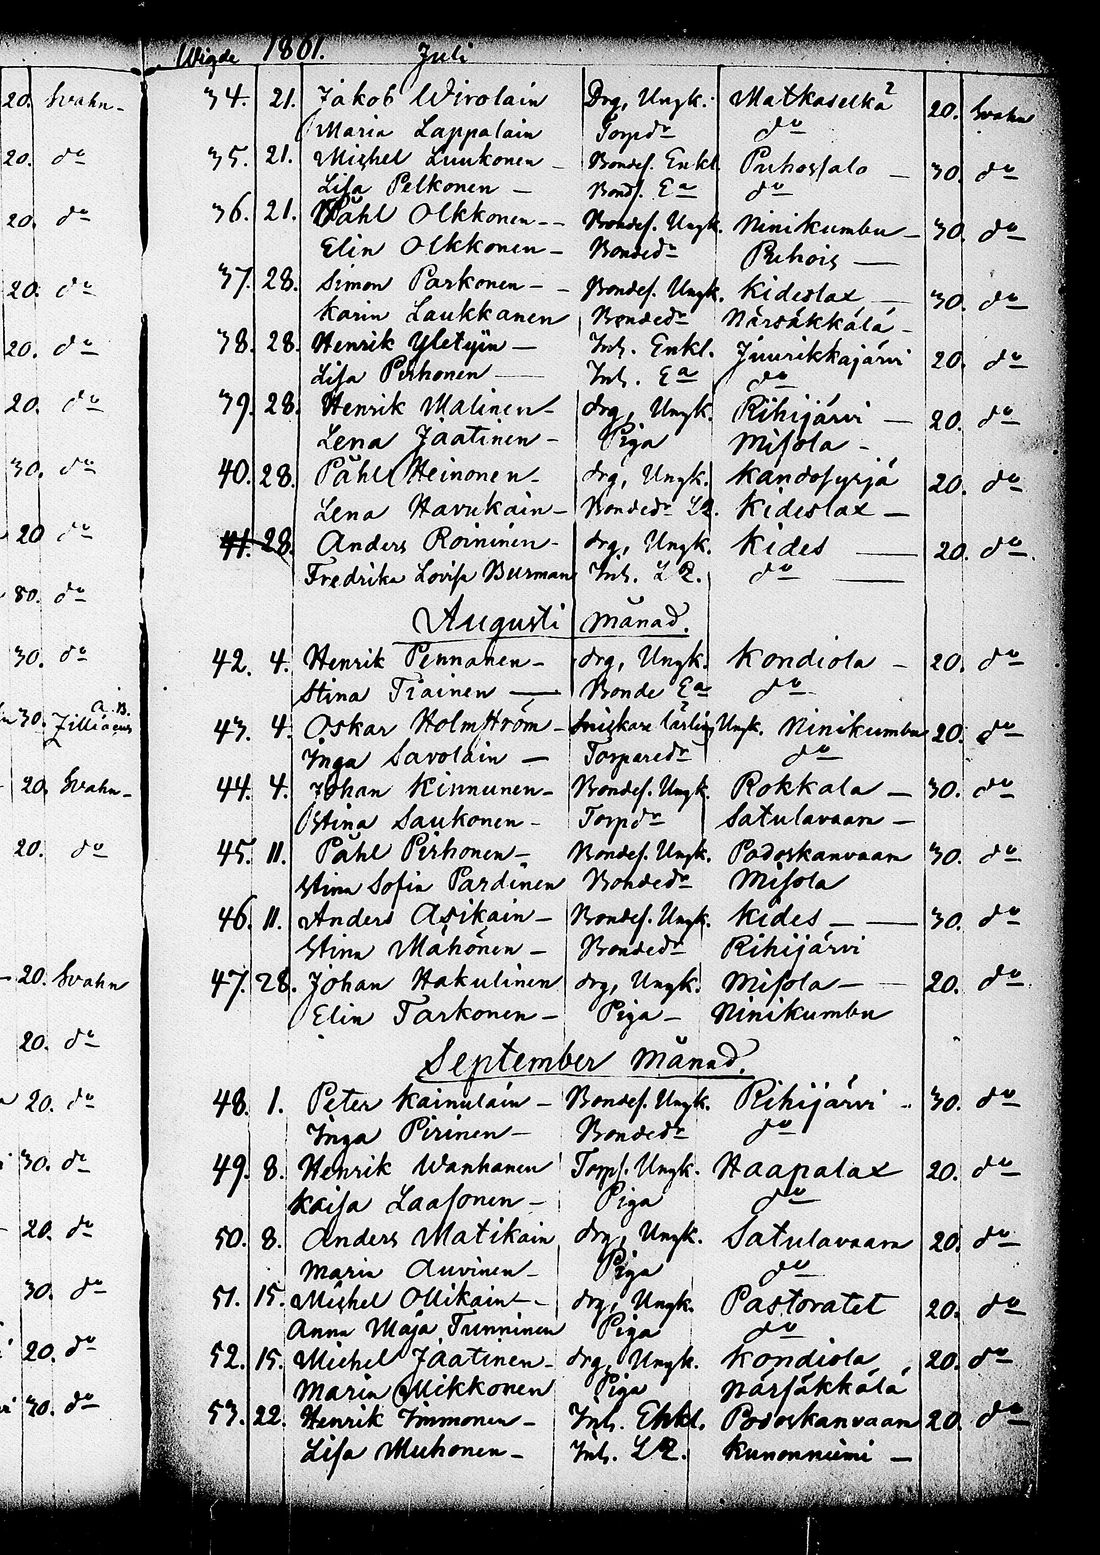 Wigde 1861. Juli
34. 21. Jakob Wirolain Drg, Ungk. Matkaselkä 20. Svahn
Maria Lappalain Torpdr do
35. 21. Mishel Luukonen - Bondes. Enkl. Puhossalo - 30. do
Lisa Pelkonen - Bond. Ea do
36. 21. Påhl Olkkonen - - Bondes. Ungk. Ninikumbu - 30. do
Elin Olkkonen - Bondedr Puhois -
37. 28. Simon Parkonen - - Bondes. Ungk. Kideslax - 30. do
Karin Laukkanen Bondedr Närsäkkälä -
38. 28. Henrik Yletyin - Inh. Enkl. Juurikkajärvi 20. do
Lisa Pirhonen - Inh. Ea do
39. 28. Henrik Malinen - drg, Ungk. Rihijärvi - 20. do
Lena Jaatinen - Piga Misola -
40. 28. Påhl Heinonen - drg, Ungk. Kandosyrjä 20. do
Lena Havukain - Bondedr LQ. Kideslax -
41. 28. Anders Roininen - drg, Ungk. Kides - 20. do.
Fredrika Lovisa Burman Inh. LQ. do -
Augusti månad.
42. 4. Henrik Pennanen - drg, Ungk. Kondiola - 20. do
Stina Tiainen - Bonde Ea do
43. 4. Oskar Holmström - Snickare lärling Ungk. Ninikumbu 20. do
Inga Savolain - Torparedr do
44. 4. Johan Kinnunen - Bondes. Ungk. Rokkala - 30. do
Stina Saukonen - Torpdr Satulavaara -
45. 11. Påhl Pirhonen - Bondes. Ungk. Podoskavaara 30. do
Stina Sofia Pardinen Bondedr Misola
46. 11. Anders Asikain - Bondes. Ungk. Kides - - 30. do
Stina Mähönen - Bondedr Rihijärvi
47. 28. Johan Hakulinen drg, Ungk. Misola - - 20. do
Elin Tarkonen - Piga - Ninikumbu
September månad.
48. 1. Peter Kainulain - Bondes. Ungk. Rihijärvi - 30. do
Inga Pirinen - Bondedr do
49. 8. Henrik Wanhanen Torps. Ungk. Haapalax 20. do
Kaisa Laasonen - Piga do
50. 8. Anders Matikain drg, Ungk. Satulavaara 20. do
Maria Auvinen - Piga do
51. 15. Mishel Ollikain - - drg, Ungk. Pastoratet 20. do
Anna Maja Tunninen Piga do
52. 15. Michel Jaatinen - drg, Ungk. Kondiola, 20. do
Maria Mikkonen Piga Närsäkkälä
53. 22. Henrik Immonen - Inh. Enkl. Podoskavaara 20. do
Lisa Muhonen - Inh. LQ. Kunonniemi -
20. Svahn -
20. do
20. do
20. do
20. do
20. do
30. do
20 do
80. do
30. do
30. A. B. Zilliacus
20. Svahn -
20. do
20. Svahn
20. do
20. do
30. do
20. do
30. do
20. do
30. do